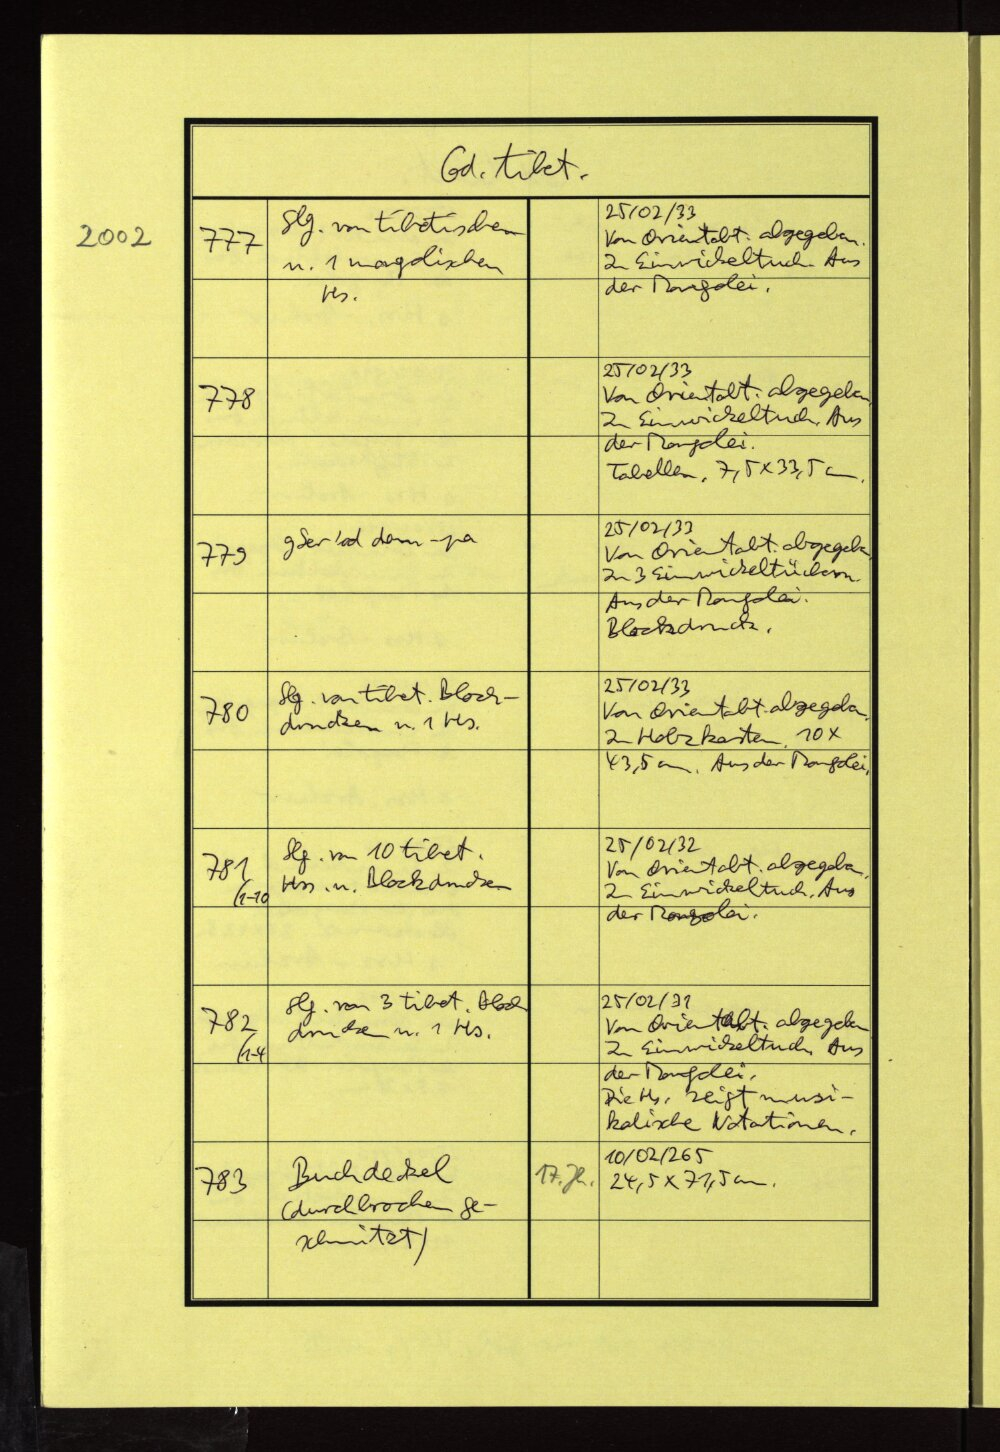 Cod. tibet.
2002
777
Slg. von tibetischen
u. 1 mongolischen
Hs.
25/02/33
Von Orientabt. abgegeben.
In Einwickeltuch. Aus
der Mongolei.
778
25/02/33
Von Orientabt. abgegeben
In Einwickeltuch. Aus
der Mongolei.
Tabellen. 7,5 x 33,5 cm.
779
gSer 'od dam-pa
25/02/33
Von Orientabt. abgegeben
In 3 Einwickeltüchern.
Aus der Mongolei.
Blockdruck.
780
Slg. von tibet. Block-
drucken u. 1 Hs.
25/02/33
Von Orientabt. abgegeben.
In Holzkasten. 10 x
43,5 cm. Aus der Mongolei.
781
(1-10
Slg. von 10 tibet.
Hss. u. Blockdrucken
25/02/32
Von Orientabt. abgegeben.
In Einwickeltuch. Aus
der Mongolei.
782
(1-4
Slg. von 3 tibet. Block
drucken u. 1 Hs.
25/02/31
Von Orientabt. abgegeben
In Einwickeltuch. Aus
der Mongolei.
Die Hs. zeigt musi-
kalische Notationen.
783
Buchdeckel
(durchbrochen ge-
schnitzt)
17. Jh.
10/02/265
24,5 x 71,5 cm.